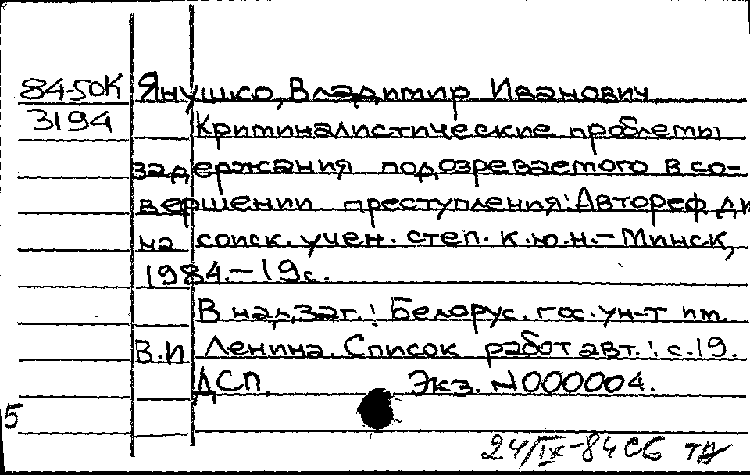 84-50К Янушко, Владимир Иванович
3194 Криминалистические проблемы
задержания подозреваемого в со-
вершении преступления: Автореф. ди
на соиск. учен. степ. к.ю.н. - Минск,
1984. - 19с.
В надзаг.: Белорус. гос. ун-т им.
В.И Ленина. Список работ авт.: с.19.
ДСП. Экз. N000004.
5
24/IX-84 СБ